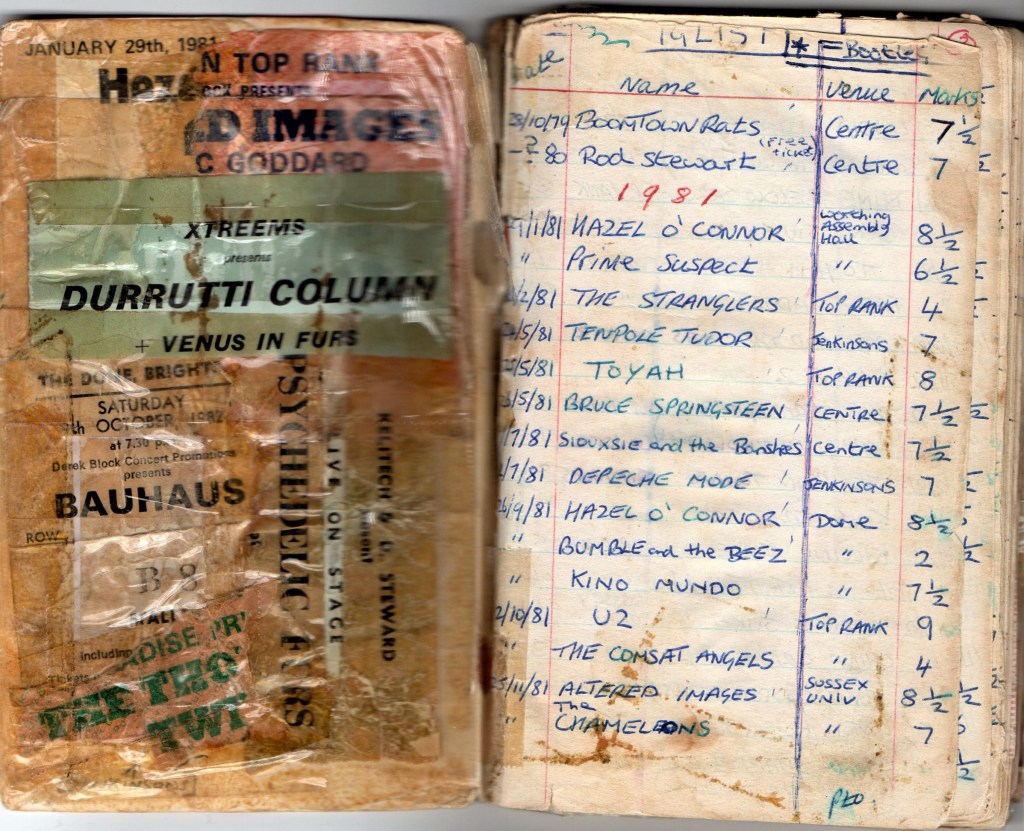 JANUARY 29th, 1981
N TOP RANK
Haze
OCK PRESENTS
D IMAGES
C GODDARD
XTREEMS
presents
DURRUTTI COLUMN
+ VENUS IN FURS
THE DOME, BRIGHT
SATURDAY
th OCTOBER, 1982
at 7.30 p.m.
Derek Block Concert Promotions
presents
BAUHAUS
ROW
B 8
including
ADISE PR
THE
TWI
PSYCHEDELIC FURS
LIVE ON STAGE
KELITCH & D. STEWARD
GIGLIST * = Bootleg
Date Name Venue Marks
28/10/79 BOOMTOWN RATS Centre 7½
-?-80 Rod Stewart (free ticket) Centre 7
1981
9/1/81 HAZEL O'CONNOR Worthing Assembly Hall 8½
" Prime Suspect " 6½
/2/81 THE STRANGLERS TOP RANK 4
/5/81 TENPOLE TUDOR Jenkinsons 7
/5/81 TOYAH TOP RANK 8
/5/81 BRUCE SPRINGSTEEN CENTRE 7½
/7/81 SIOUXSIE and the Banshees Centre 7½
/7/81 DEPECHE MODE JENKINSONS 7
26/9/81 HAZEL O'CONNOR Dome 8½
" BUMBLE and the BEEZ " 2
" KINO MUNDO " 7½
2/10/81 U2 TOP RANK 9
" THE COMSAT ANGELS " 4
5/11/81 ALTERED IMAGES SUSSEX UNIV 8½
" The CHAMELEONS " 7
PTO